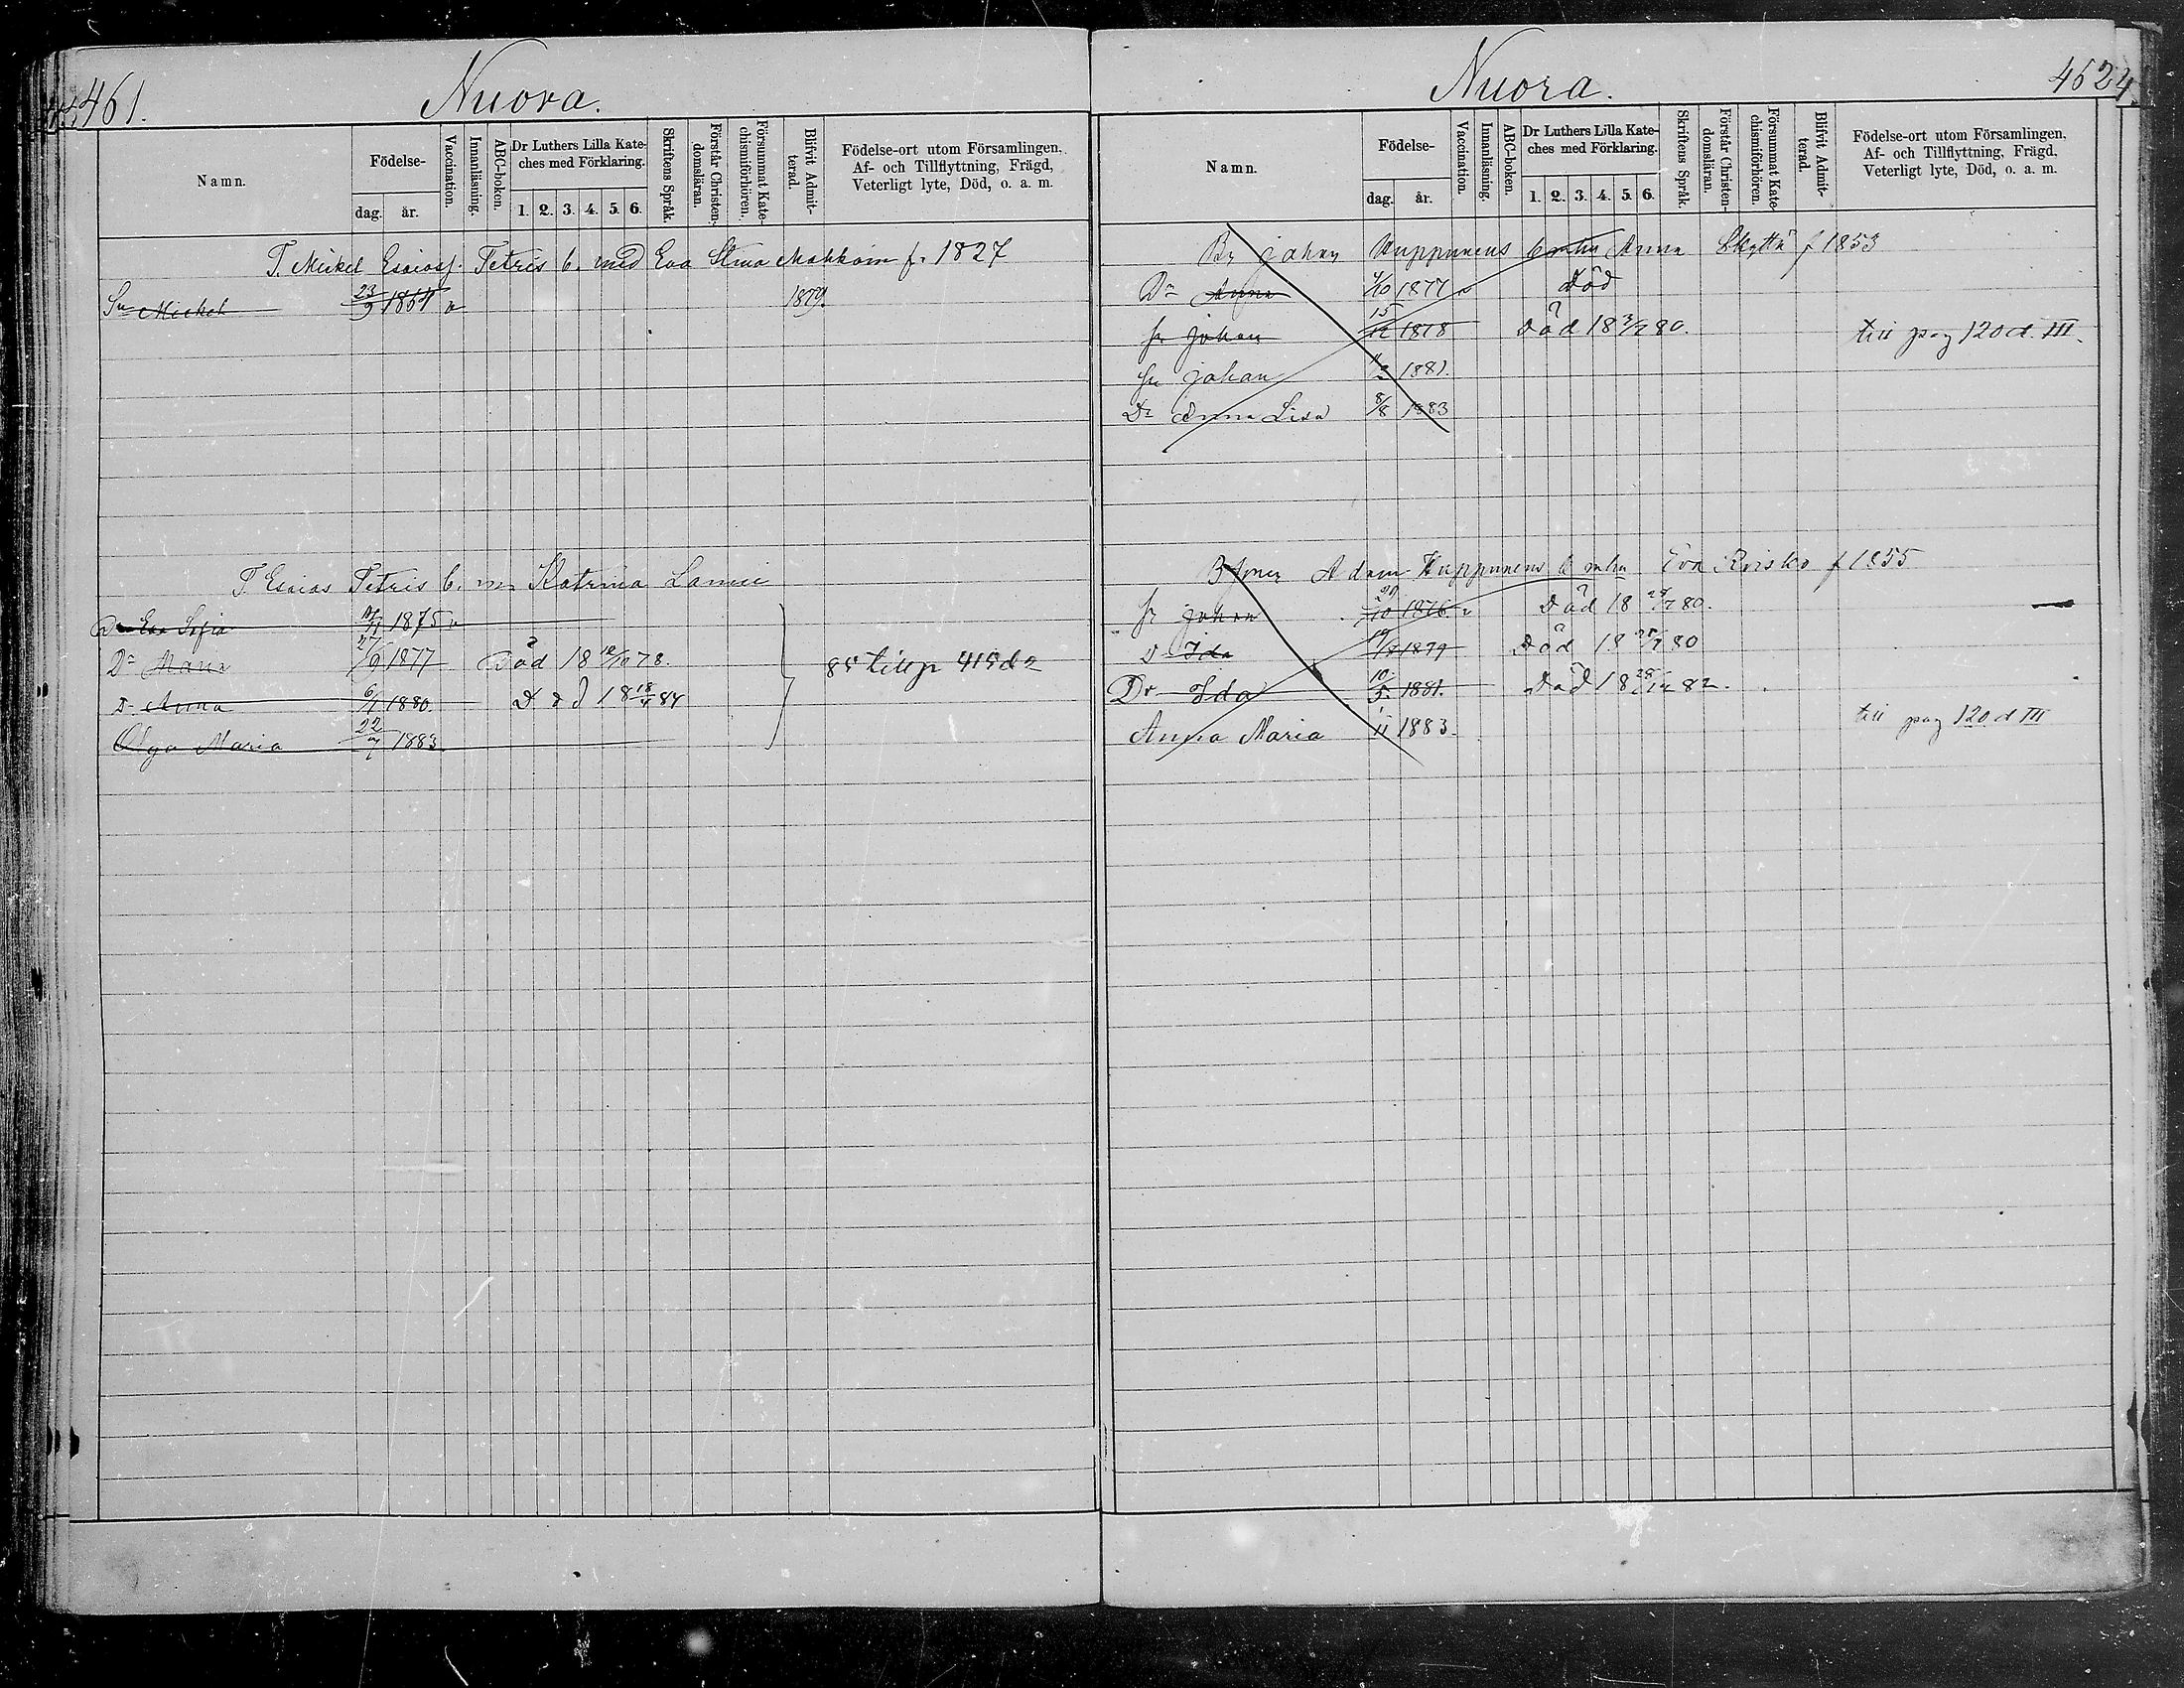 461.
Nuora.
Namn.
Födelse-
dag.
år.
Vaccination.
Innanläsning.
ABC-boken.
Dr Luthers Lilla Kate-
ches med Förklaring.
1. 2. 3. 4. 5. 6.
Skriftens Språk.
Förstår Christen-
domsläran.
Försummat Kate-
chismiförhören.
Blifvit Admit-
terad.
Födelse-ort utom Församlingen,
Af- och Tillflyttning, Frägd,
Veterligt lyte, Död, o. a. m.
T. Mickel Esaiass. Tetris b. med Eva Stina f. 1827
Sn Mickel 23/9 1851 v 1879.
T. Esaias Tetris b. m Katrina
Dr Eva Sofia 1875 v
Dr Maria 27/9 1877 Död 18 12/10 78.
Dr Anna 6/1 1880. Död 18 18/4 84
85 till p 415 d 2
Olga Maria 22/7 1883
4624
Nuora.
Namn.
Födelse-
dag.
år.
Vaccination.
Innanläsning.
ABC-boken.
Dr Luthers Lilla Kate-
ches med Förklaring.
1. 2. 3. 4. 5. 6.
Skriftens Språk.
Förstår Christen-
domsläran.
Försummat Kate-
chismiförhören.
Blifvit Admit-
terad.
Födelse-ort utom Församlingen,
Af- och Tillflyttning, Frägd,
Veterligt lyte, Död, o. a. m.
Br Johan Huppunens b mhu Anna Skyttä f 1853
Dr Anna 4/10 1877 v Död
sn Johan 15/12 1878 Död 18 3/7 80.
till pag 120 d. III.
sn Johan 11/2 1881.
Dr Anna Lisa 8/8 1883
Adam Huppunens b mhu Eva Risko f 1855
sn Johan 1876. v Död 18 80.
D Ida 1879 Död 18 80
Dr Ida 10/5 1881. Död 18 28/12 82.
till pag 120 d III
Anna Maria 1/11 1883.